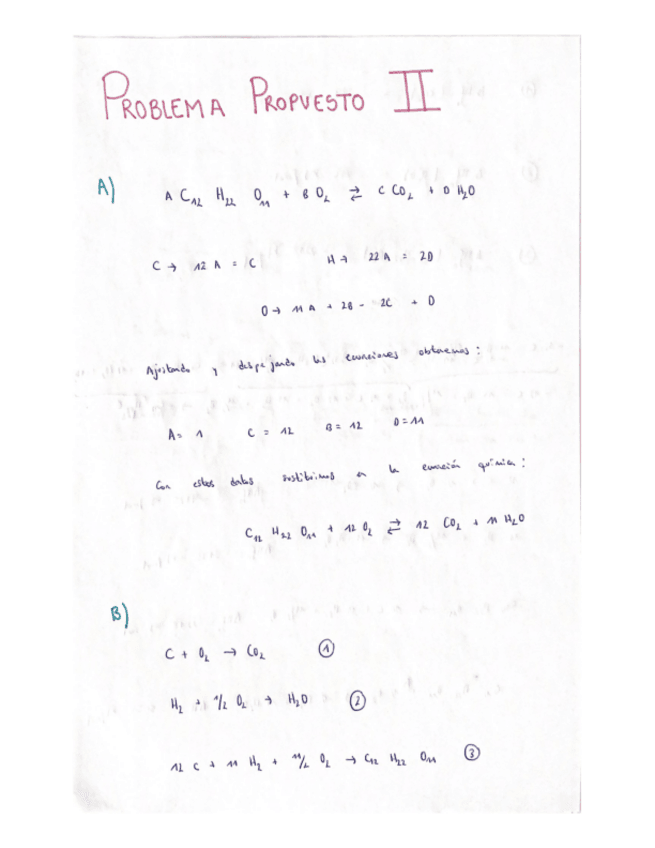 PROBLEMA PROPUESTO II
A) A C₁₂ H₂₂ O₁₁ + B O₂ ⇄ C CO₂ + D H₂O
C → 12 A = C H → 22 A = 2D
O → 11 A + 2B = 2C + D
Ajustando y despejando las ecuaciones obtenemos :
A = 1 C = 12 B = 12 D = 11
Con estos datos sustituimos en la ecuación química :
C₁₂ H₂₂ O₁₁ + 12 O₂ ⇄ 12 CO₂ + 11 H₂O
B)
C + O₂ → CO₂ ①
H₂ + 1/2 O₂ → H₂O ②
12 C + 11 H₂ + 11/2 O₂ → C₁₂ H₂₂ O₁₁ ③